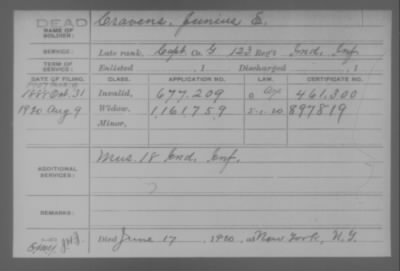 DEAD
NAME OF SOLDIER: Cravens, Junius E.
SERVICE: Late rank, Capt Co. G 123 Reg't Ind. Inf.
TERM OF SERVICE: Enlisted , 1 Discharged , 1
DATE OF FILING. CLASS. APPLICATION NO. LAW. CERTIFICATE NO.
Oct. 31 Invalid, 677.209 461,300
1920 Aug 9 Widow, 1,161,759 5-1-20 897819
Minor,
ADDITIONAL SERVICES: Mus. 18 Ind. Inf.
REMARKS:
Died June 17, 1920, at New York, N.Y.